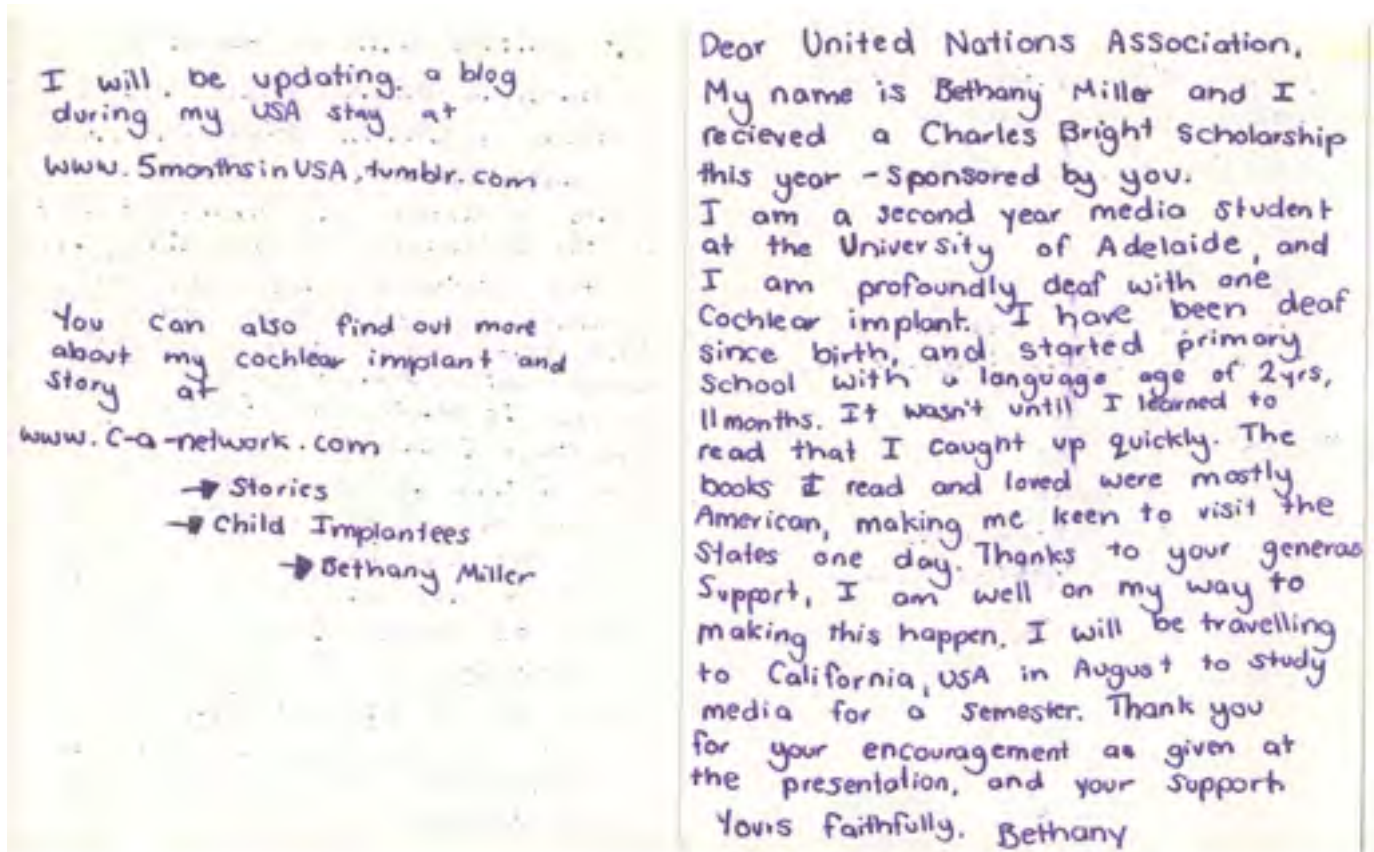 I will be updating a blog
during my USA stay at
www.5monthsinUSA.tumblr.com
You can also find out more
about my cochlear implant and
story at
www.c-a-network.com
→ Stories
→ Child Implantees
→ Bethany Miller
Dear United Nations Association,
My name is Bethany Miller and I
recieved a Charles Bright Scholarship
this year - Sponsored by you.
I am a second year media student
at the University of Adelaide, and
I am profoundly deaf with one
Cochlear implant. I have been deaf
since birth, and started primary
School with a language age of 2yrs,
11 months. It wasn't until I learned to
read that I caught up quickly. The
books I read and loved were mostly
American, making me keen to visit the
States one day. Thanks to your generous
Support, I am well on my way to
making this happen. I will be travelling
to California, USA in August to study
media for a semester. Thank you
for your encouragement as given at
the presentation, and your support
Yours faithfully, Bethany